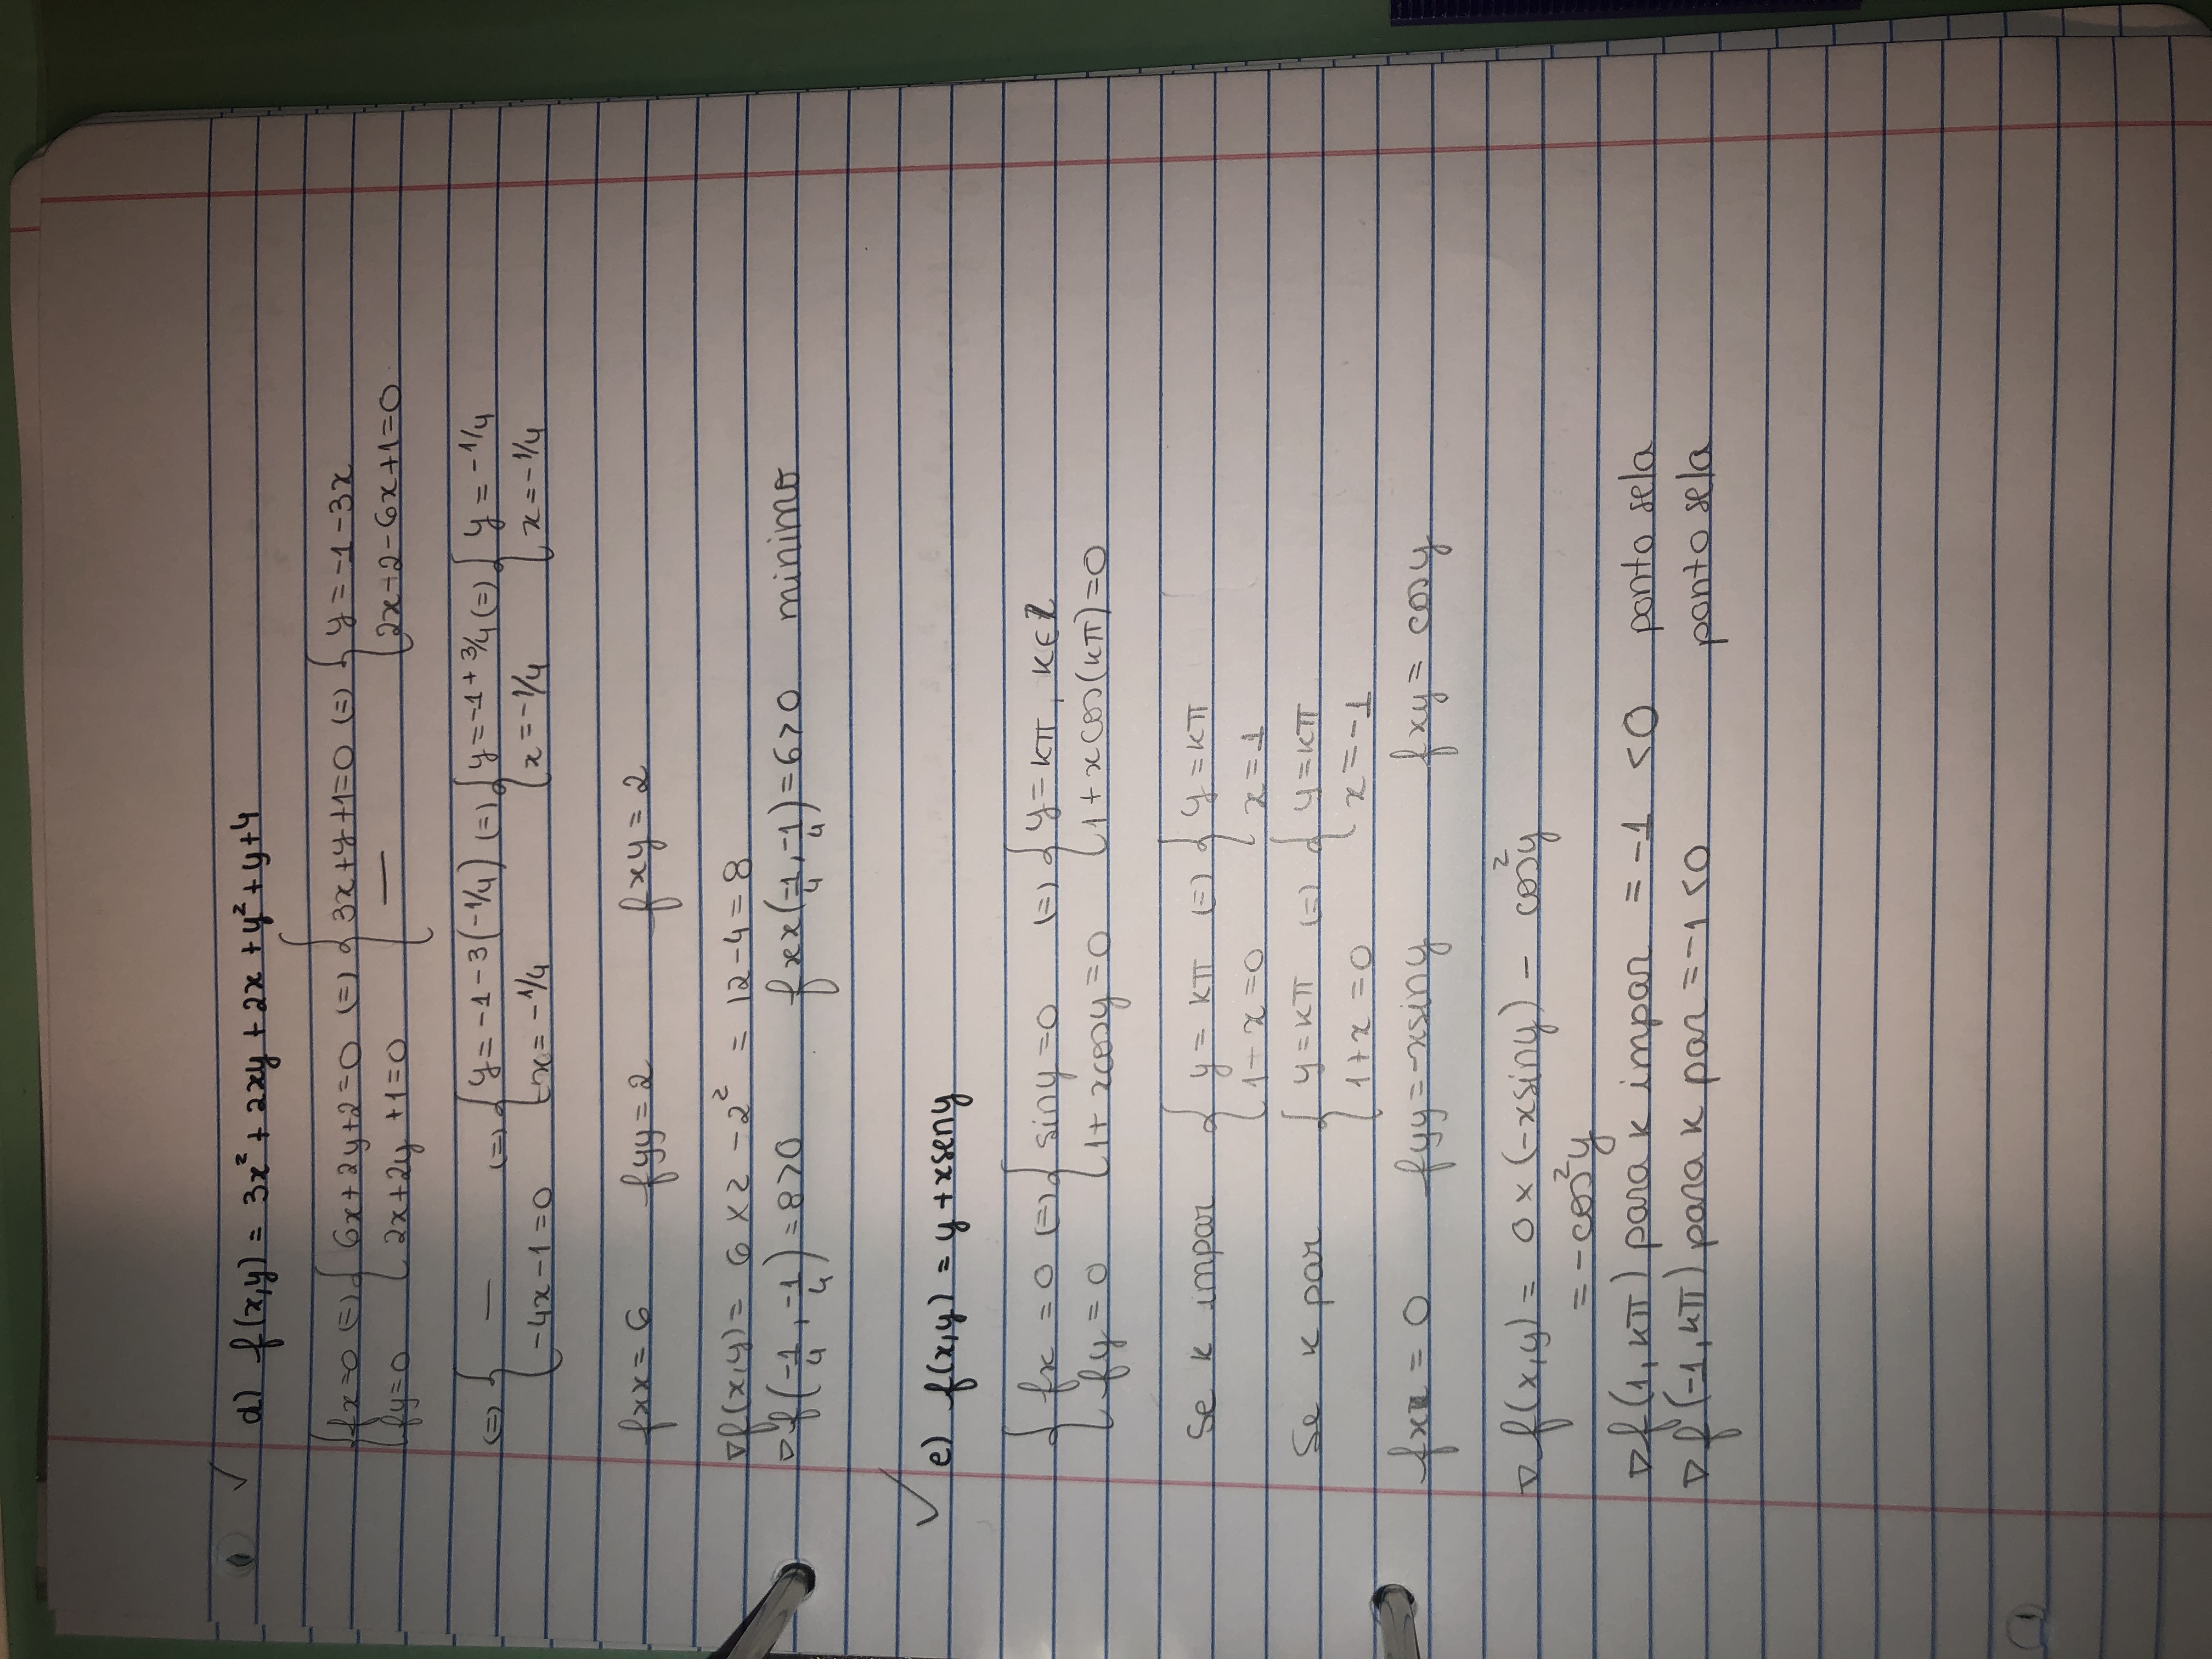 d) f(x,y) = 3x² + 2xy + 2x + y² + y + 4
{fx=0 (=) { 6x+2y+2=0 (=) { 3x+y+1=0 (=) { y = -1-3x
{fy=0 { 2x+2y+1=0 { — { 2x-2-6x+1=0
(=) { — (=) { y = -1-3(-1/4) (=) { y = -1+3/4 (=) { y = -1/4
{ -4x-1=0 { x = -1/4 { x = -1/4 { x = -1/4
fxx = 6 fyy = 2 fxy = 2
∇f(x,y) = 6 × 2 - 2² = 12-4 = 8
∇f(-1/4, -1/4) = 8>0 fxx(-1/4, -1/4) = 6>0 minimo
e) f(x,y) = y + xseny
{ fx = 0 (=) { siny = 0 (=) { y = kπ, k∈Z
{ fy = 0 { 1+xcosy = 0 { 1+xcos(kπ) = 0
Se k impar { y = kπ (=) { y = kπ
{ 1-x = 0 { x = 1
Se k par { y = kπ (=) { y = kπ
{ 1+x = 0 { x = -1
fxx = 0 fyy = -xsiny fxy = cosy
∇f(x,y) = 0 × (-xsiny) - cos²y
= -cos²y
∇f(1, kπ) para k impar = -1 <0 ponto sela
∇f(-1, kπ) para k par = -1 <0 ponto sela